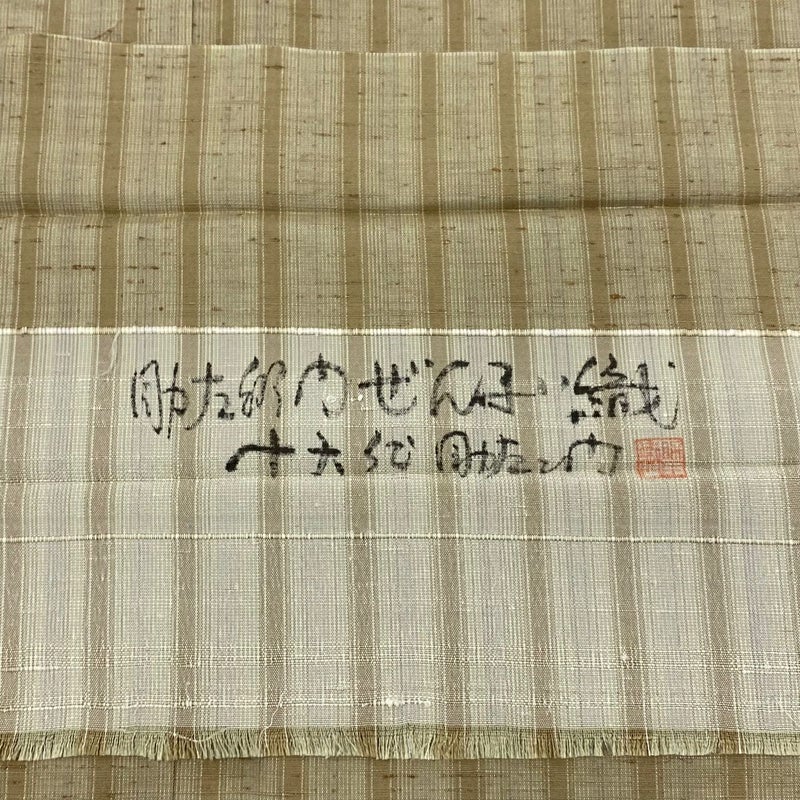 助左衛門ぜんまい織
十六代 助左エ門